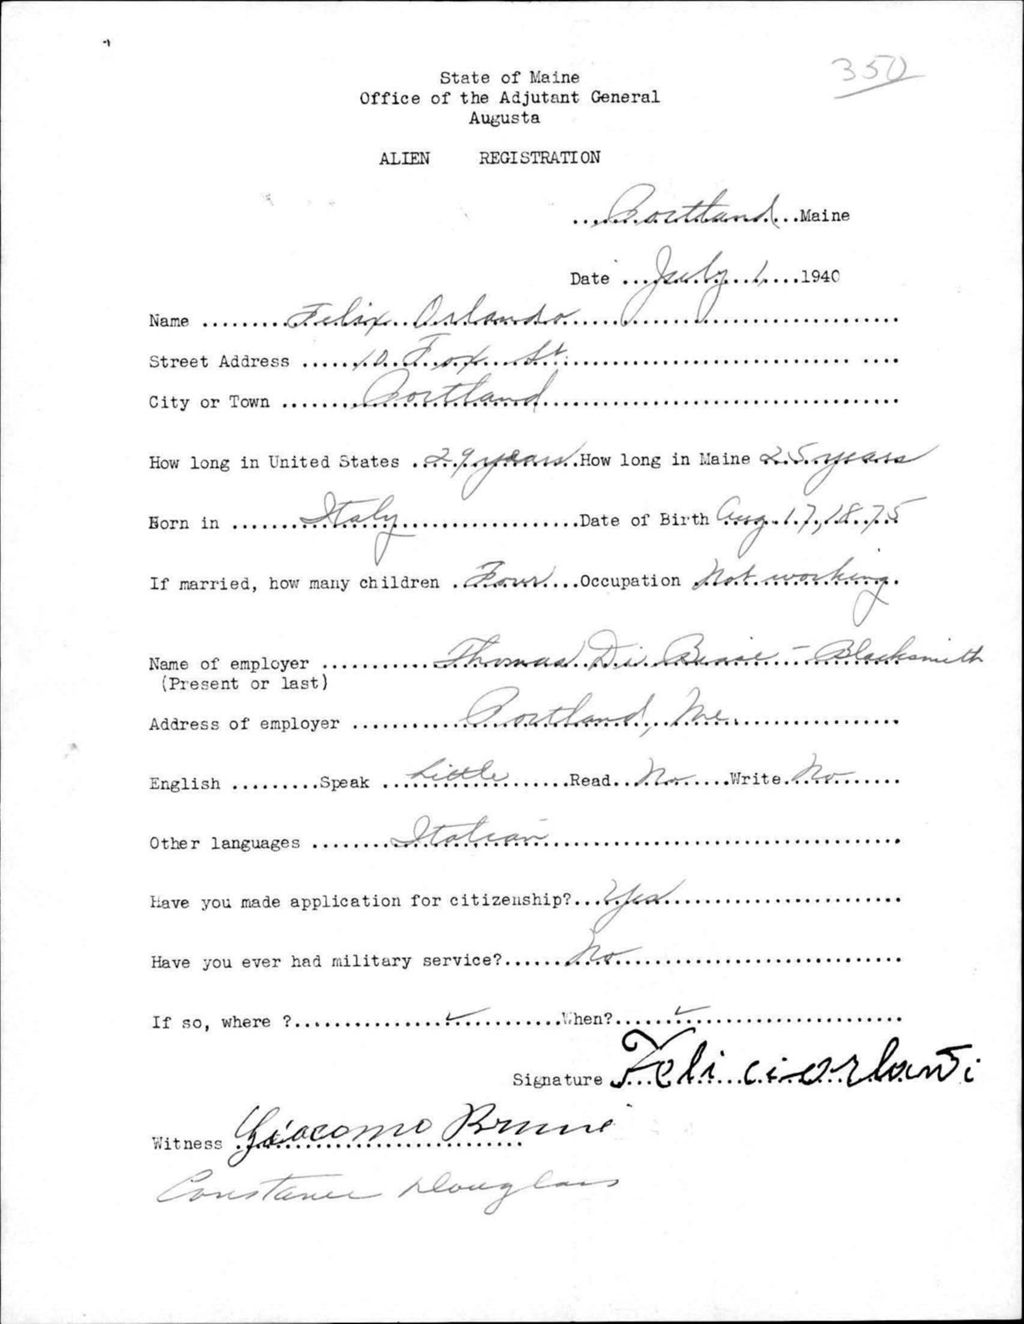 350
State of Maine
Office of the Adjutant General
Augusta
ALIEN REGISTRATION
Portland Maine
Date July 1 1940
Name Felix Orlando
Street Address 10 Fox St.
City or Town Portland
How long in United States 29 years How long in Maine 25 years
Born in Italy Date of Birth Aug. 17, 1875
If married, how many children Four Occupation Not working
Name of employer Thomas Di Biase - Blacksmith
(Present or last)
Address of employer Portland, Me.
English Speak Little Read No Write No
Other languages Italian
Have you made application for citizenship? Yes
Have you ever had military service? No
If so, where ? ✓ When? ✓
Signature Feliciorlanti
Witness Giacomo Bruni
Constance Douglass